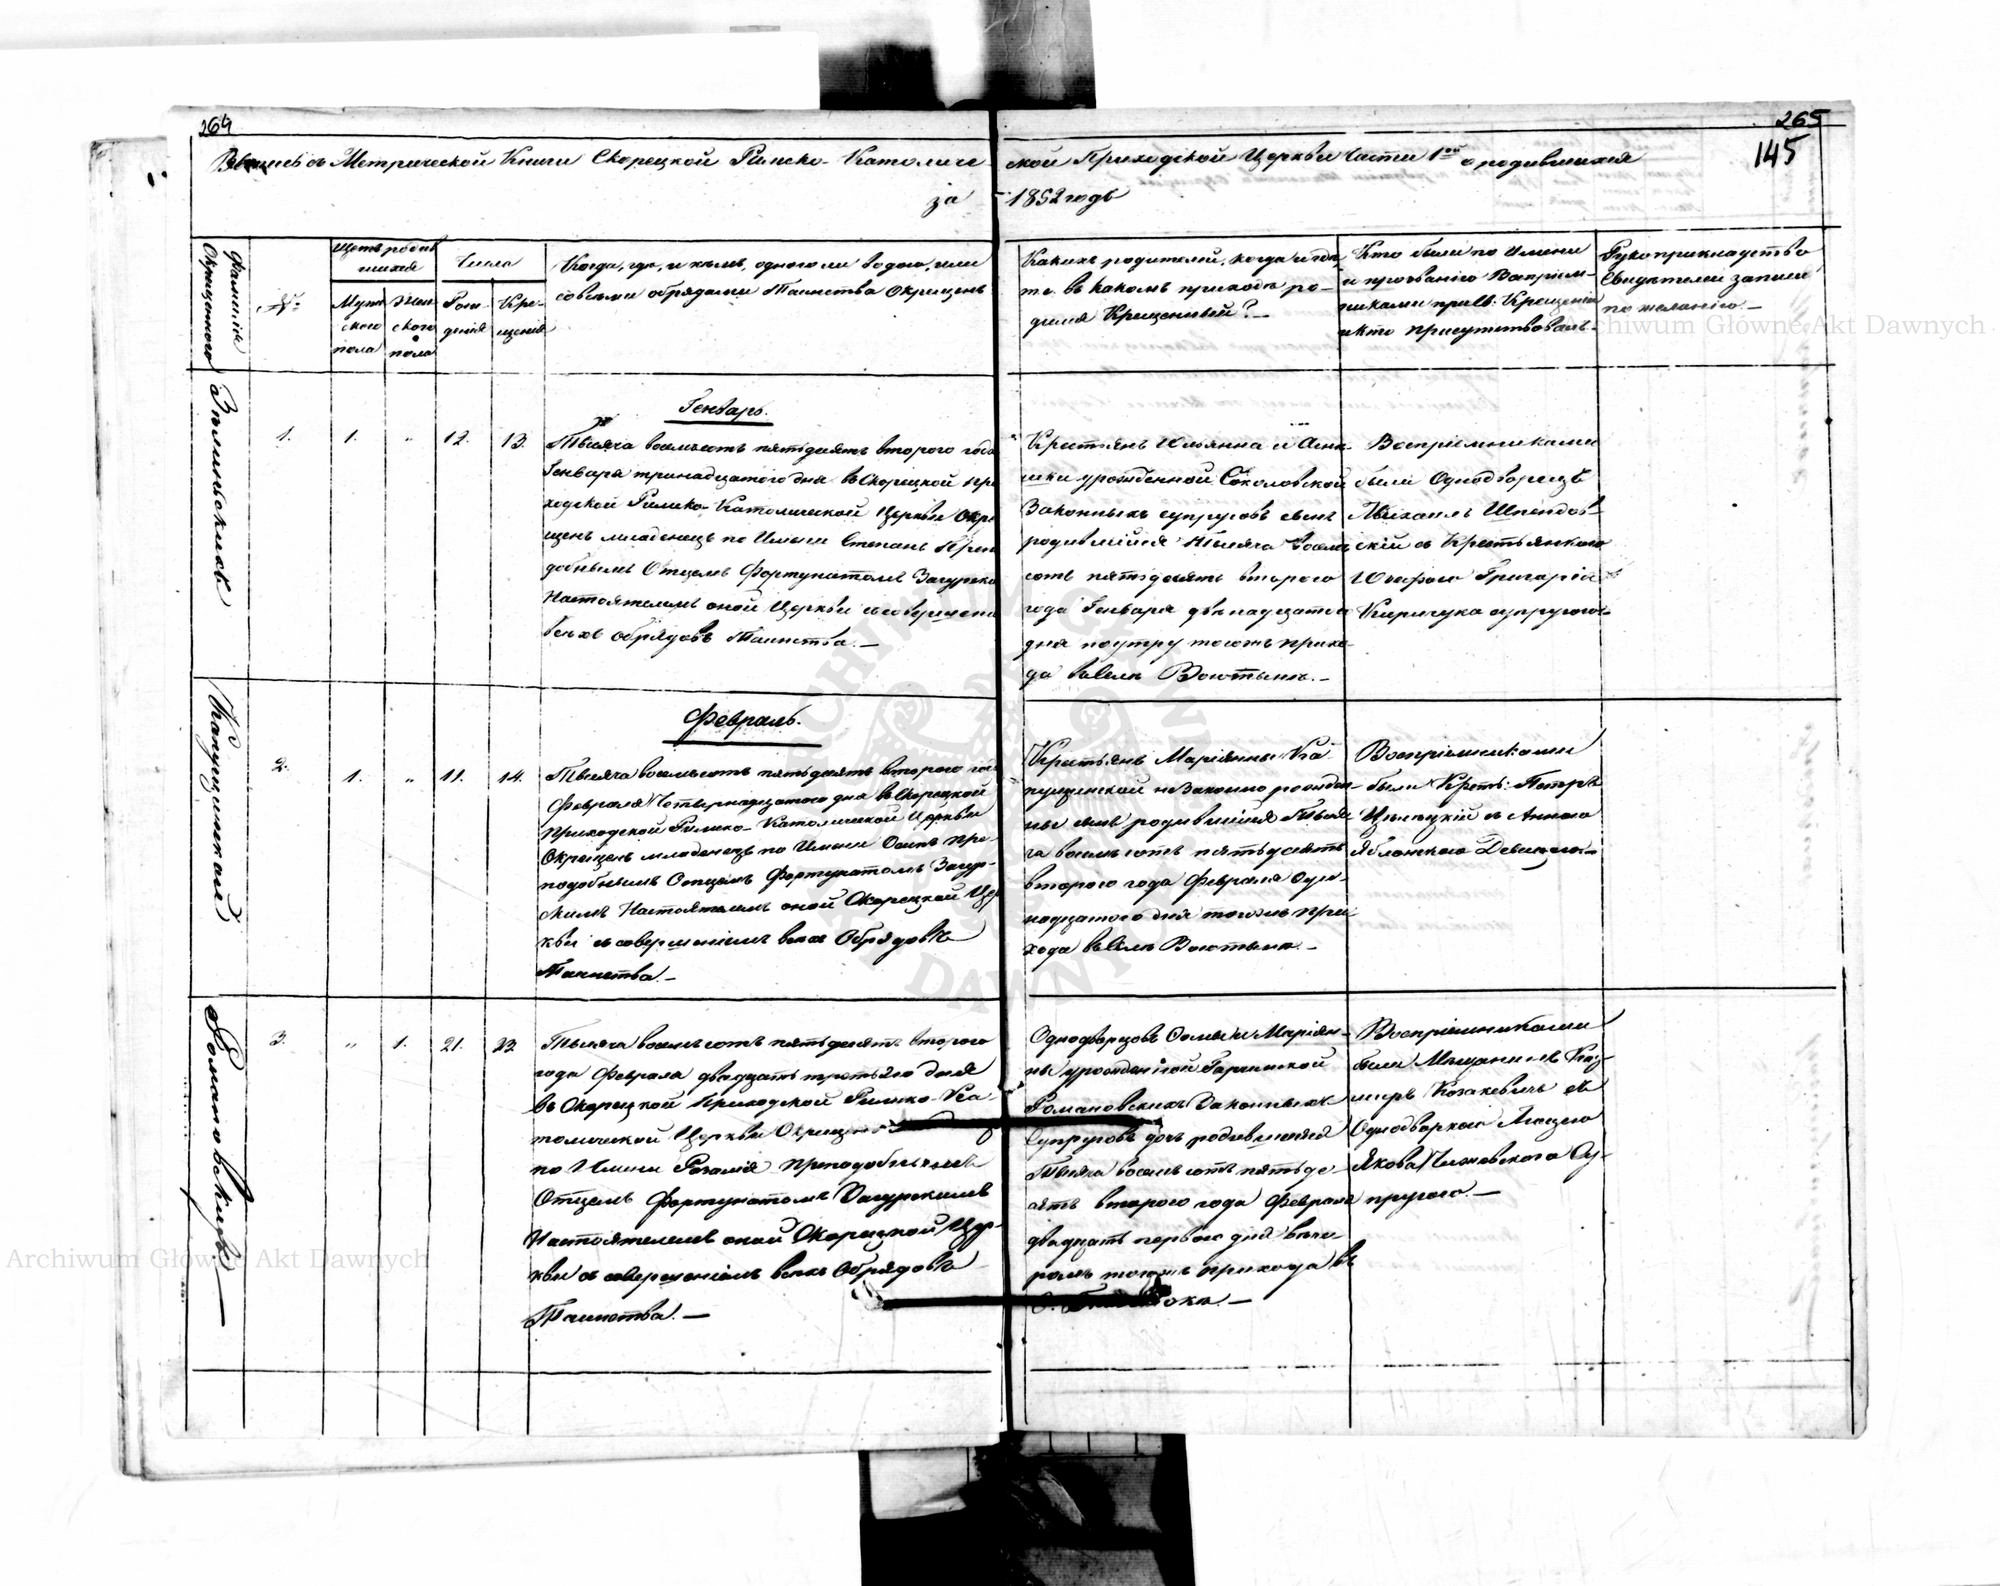 264
265
145
Выпись съ Метрической Книги Скорецкой Римско-Католиче-
ской Приходской Церкви Части 1ой о родившихся
за 1852 годъ
Фамилия Окрещенного
№
Щетъ родив
шихся
Муж
скаго
пола
Жен
скаго
пола
Числа
Рож
дения
Кре-
щения
Когда, гдѣ, и кѣмъ, одною ли водою, или
со всѣми обрядами Таинства Окрещенъ
Какихъ родителей, когда и гдѣ,
т.е. въ какомъ приходѣ ро-
дился Крещенный?
Кто были по Имени
и прозванію Воспріем-
никами при Св. Крещеніи
и кто присутствовалъ
Рукоприкладство
Свидѣтелей записи
по желанію.
Генварь.
1.
1.
"
12.
13.
Тысяча восемьсотъ пятдесятъ второго года
Генваря тринадцатого дня въ Скорецкой При
ходской Римско-Католической Церкви Окре
щенъ младенецъ по Имени Степанъ Преп
добнымъ Отцемъ Фортунатомъ Загурск
Настоятелемъ оной Церкви съ совершені
всѣхъ обрядовъ Таинства.—
Крестьянъ
урожденной Соколовской
Законныхъ супруговъ сынъ
родившійся Тысяча восем
сотъ пятдесятъ второго
года Генваря двѣнадцатого
дня поутру тогожъ прихо-
да въ Селѣ Воютынѣ.—
Воспріемниками
были Однодворецъ
Михаилъ
скій съ Крестьянкою
Григорія
Киричука супругою
Капущинской
Февраль.
2.
1.
"
11.
14.
Тысяча восемьсотъ пятьдесятъ второго го
Февраля Четырнадцатого дня въ Скорецкой
Приходской Римско-Католической Церкви
Окрещенъ младенецъ по Имени Осипъ Пре-
подобнымъ Отцемъ Фортунатомъ Загур-
скимъ Настоятелемъ оной Скорецкой Цер
кви съ совершеніемъ всѣхъ Обрядовъ
Таинства.—
Крестьянъ Маріянны Ка-
пущинской незаконно рожден-
ны сынъ родившійся Тыся
ча восемьсотъ пятьдесятъ
второго года Февраля Оди-
надцатого дня тогожъ при
хода въ Селѣ Воютынѣ.—
Воспріемниками
были Крест: Петръ
съ Анною
Девицею—
Романовскихъ—
3.
"
1.
21.
23
Тысяча восемьсотъ пятьдесятъ второго
года Февраля двадцать третьяго дня
въ Скорецкой Приходской Римско-Ка-
толической Церкви Окрещена
по Имени Розалія Преподобнымъ
Отцемъ Фортунатомъ Загурскимъ
Настоятелемъ оной Скорецкой Цер-
кви съ совершеніемъ всѣхъ Обрядовъ
Таинства.—
Однодворцовъ Фомы и Маріян-
ны урожденной
Романовскихъ Законныхъ
Супруговъ дочь родившаяся
Тысяча восемьсотъ пятьде
сятъ второго года Февраля
двадцать первого дня вече
ромъ тогожъ прихода въ
Воспріемниками
были Мѣщанинъ Каз-
миръ Козакевичъ съ
Однодворкою
Якова Чижевского Су-
пругою.—
Archiwum Główne Akt Dawnych
Archiwum Główne Akt Dawnych